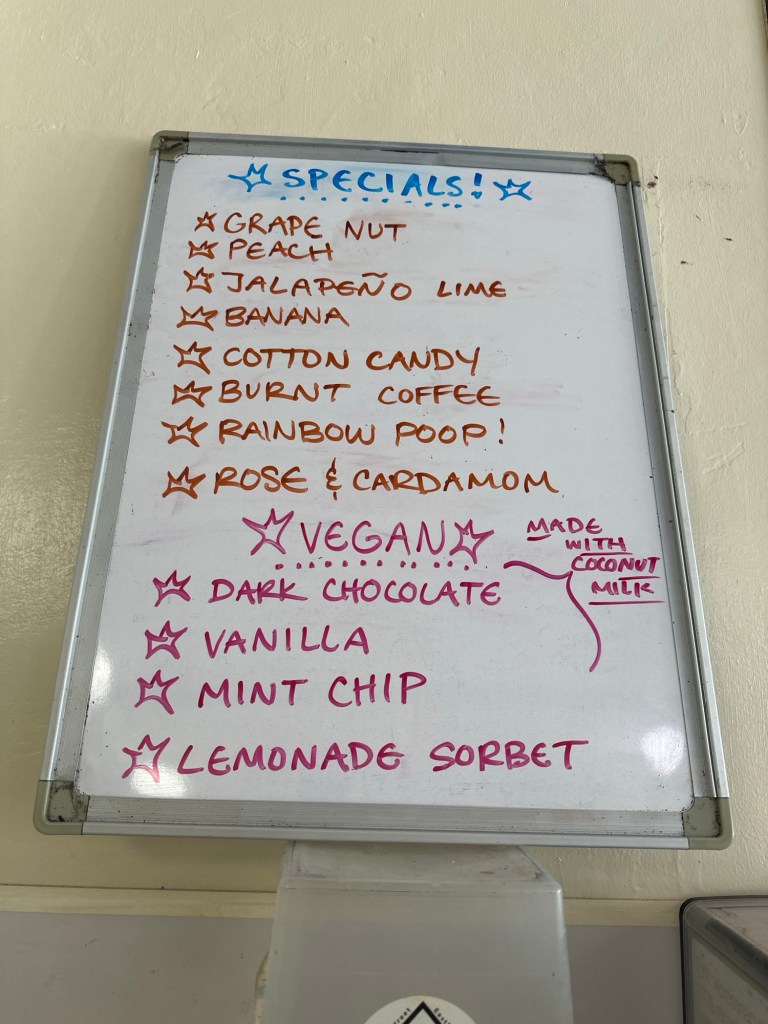 SPECIALS!
GRAPE NUT
PEACH
JALAPEÑO LIME
BANANA
COTTON CANDY
BURNT COFFEE
RAINBOW POOP!
ROSE & CARDAMOM
VEGAN
MADE
WITH
COCONUT
MILK
DARK CHOCOLATE
VANILLA
MINT CHIP
LEMONADE SORBET